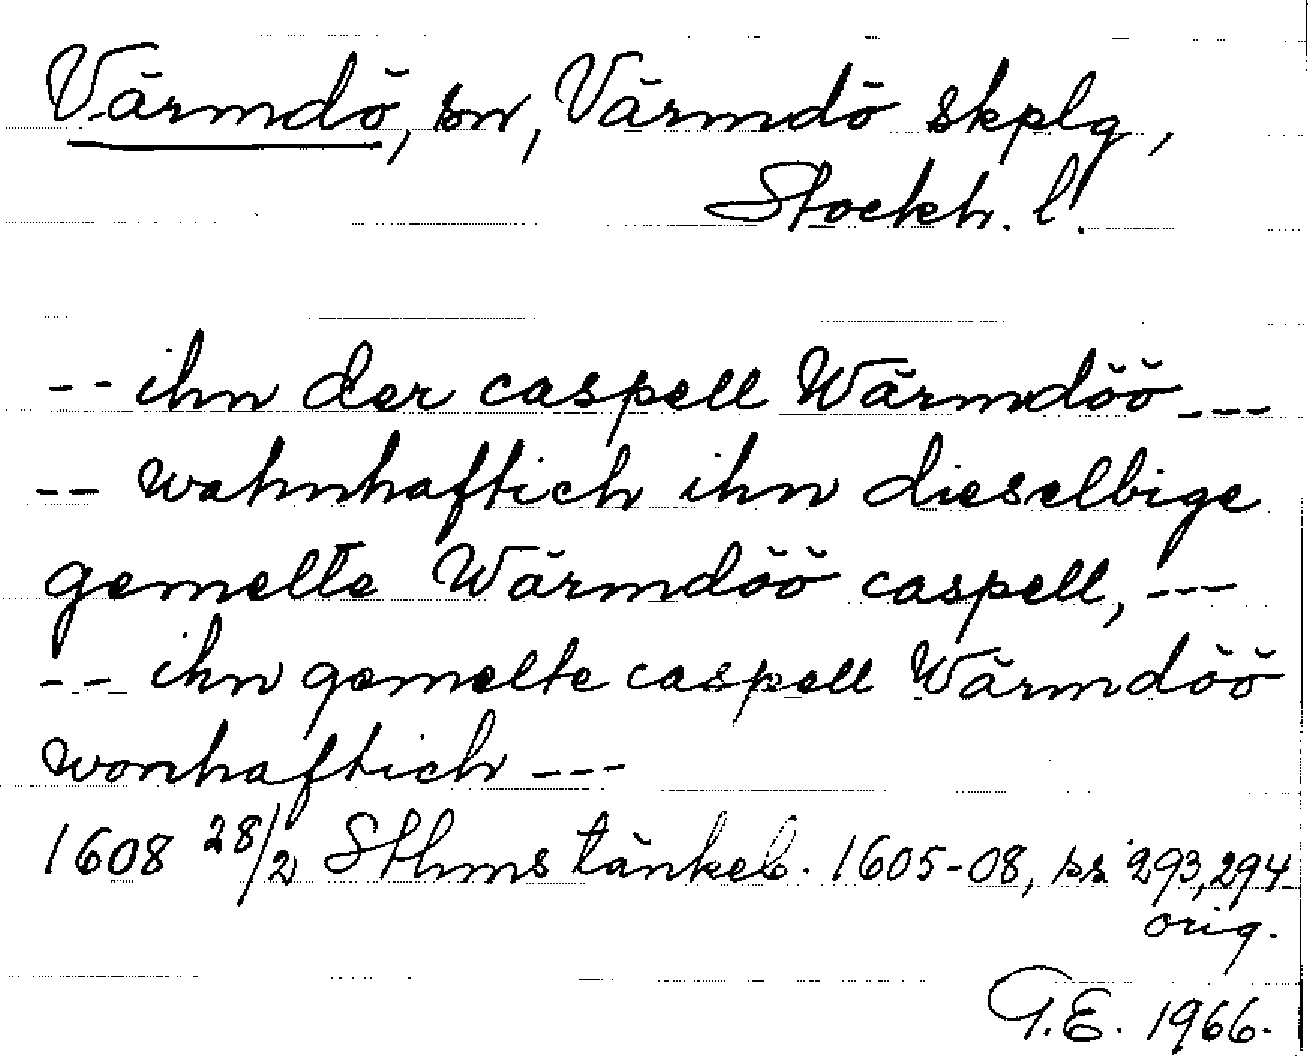 Värmdö, sn, Värmdö skplg,
Stockh. l.
-- ihn der caspell Wärmdöö ---
-- wahnhaftich ihn dieselbige
gemelte Wärmdöö caspell, ---
-- ihn gemelte caspell Wärmdöö
wonhaftich ---
1608 28/2 Sthms tänkeb. 1605-08, ss 293, 294
orig.
G.E. 1966.